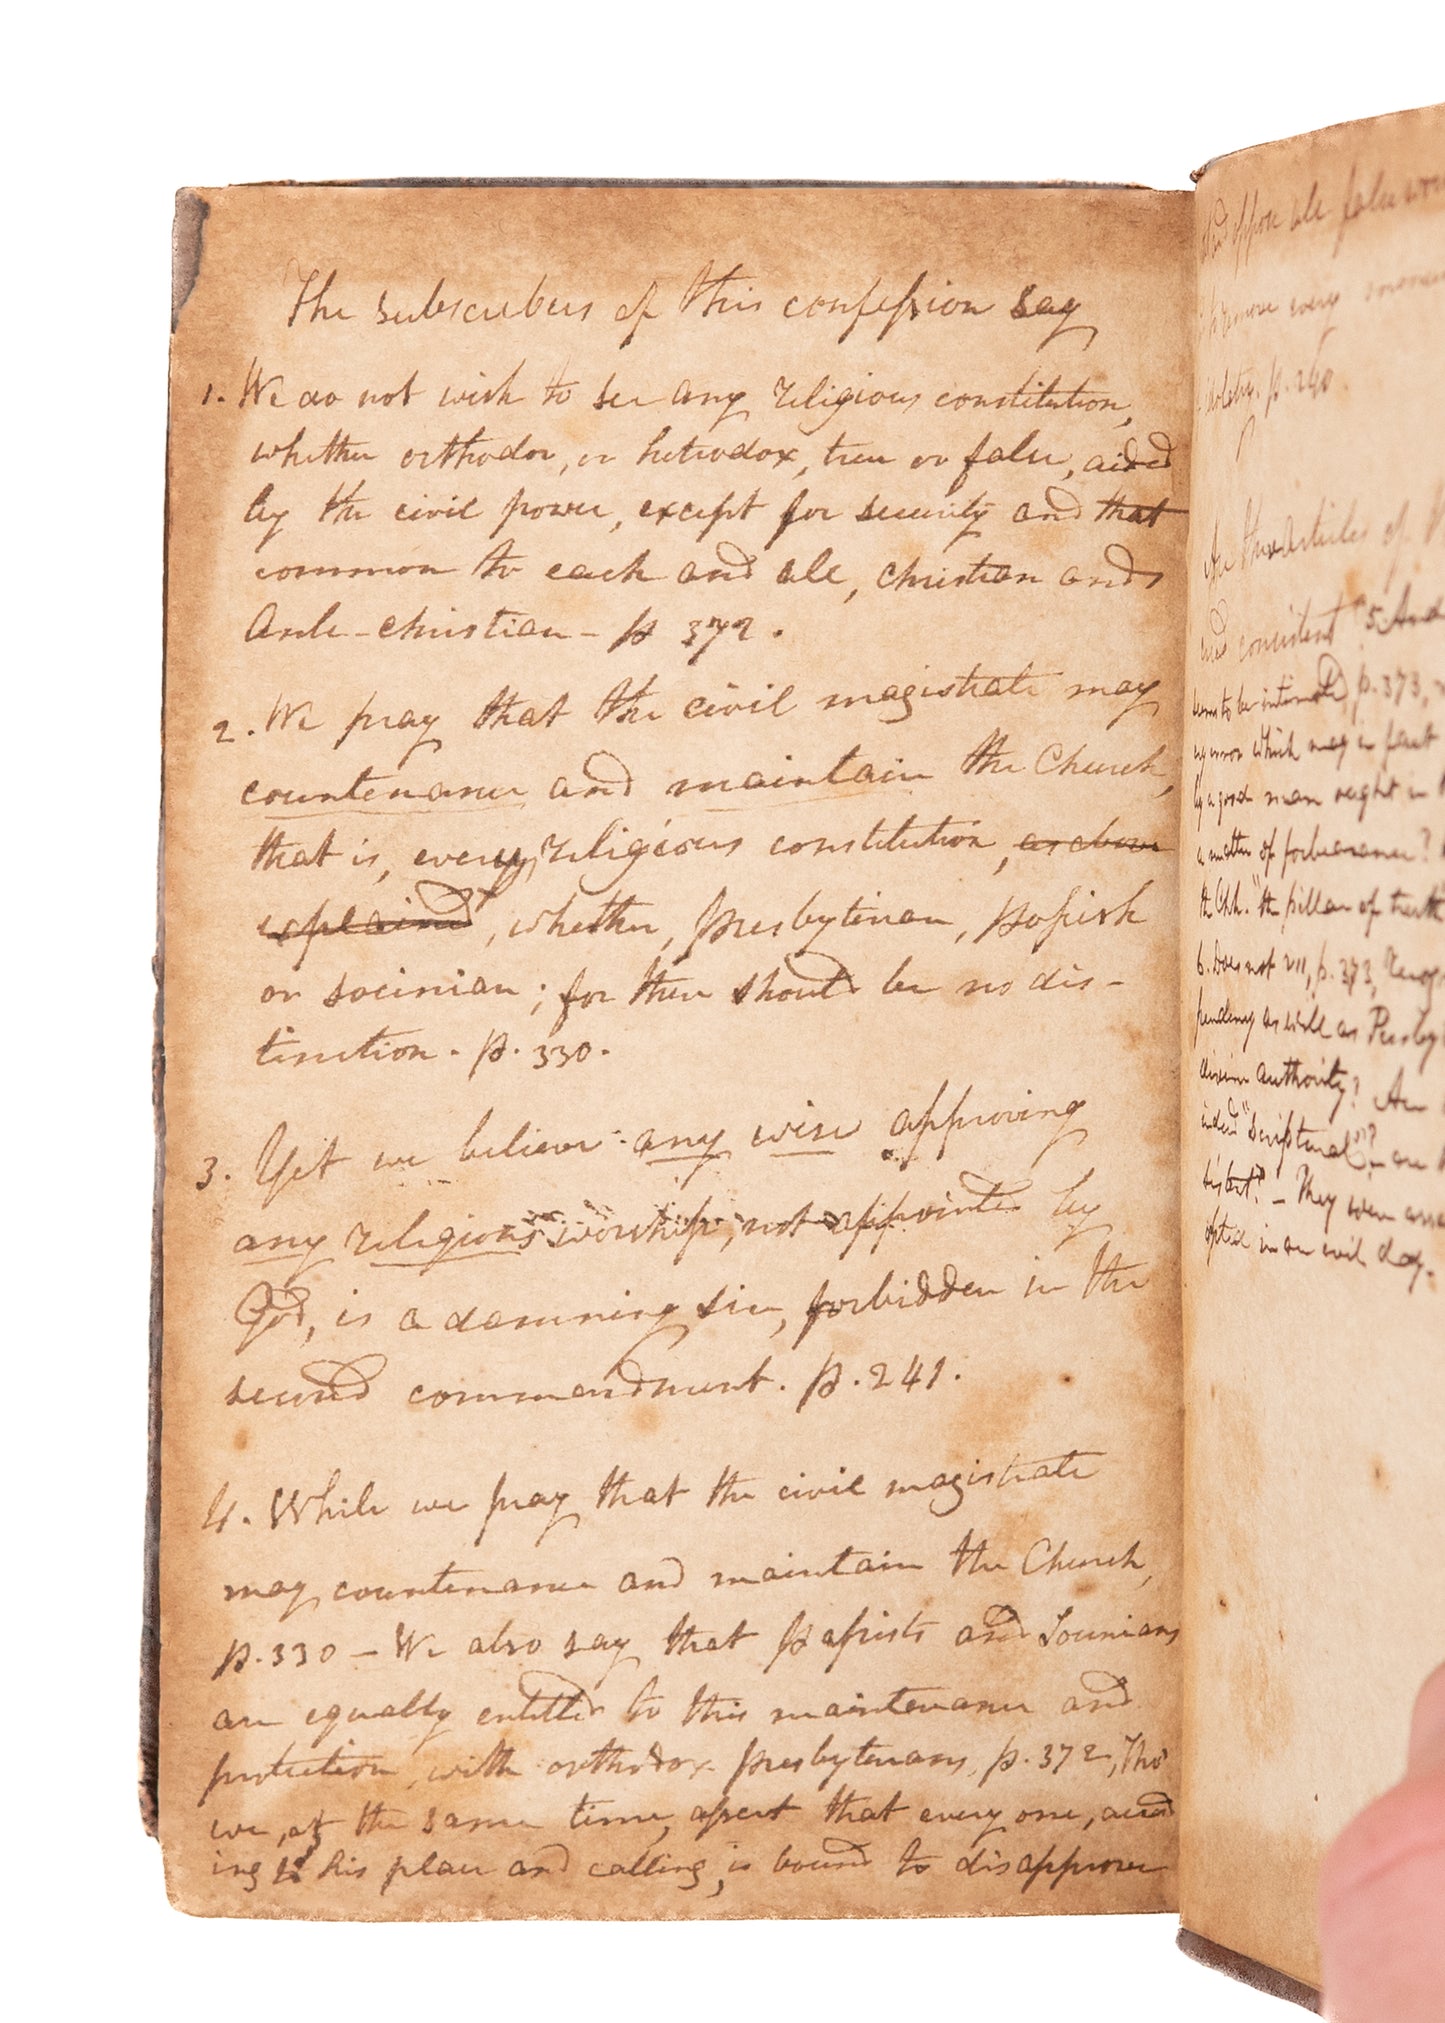 The subscribers of this confession say
1. We do not wish to see any religious constitution,
whether orthodox, or hetrodox, true or false, aided
by the civil power, except for security and that
common to each and all, Christian and
Anti-christian - p 372.
2. We pray that the civil magistrate may
countenance and maintain the Church,
that is, every religious constitution, as above
explained, whether, presbyterian, popish
or socinian; for there should be no dis-
tinction. p. 330.
3. Yet we believe any wise approving
any religious worship, not appointed by
God, is a damning sin, forbidden in the
second commandment. p. 241.
4. While we pray that the civil magistrate
may countenance and maintain the Church,
p. 330 - We also say that papists and Socinians
are equally entitled to this maintenance and
protection, with orthodox presbyterians, p. 372, Tho'
we, at the same time, assert that every one, accord
ing to his place and calling, is bound to disapprove
and oppose all false
to remove every
idolatry. p. 240
Are these articles of
and consistent? 5. And
seems to be intimated, p. 373,
which may in fact
by a good man ought in
a matter of forbearance?
the Chh. "the pillar of truth
6. Does not VII, p. 373,
as well as
divine authority? Are
indeed "scriptural"? are
They were
in an evil day.